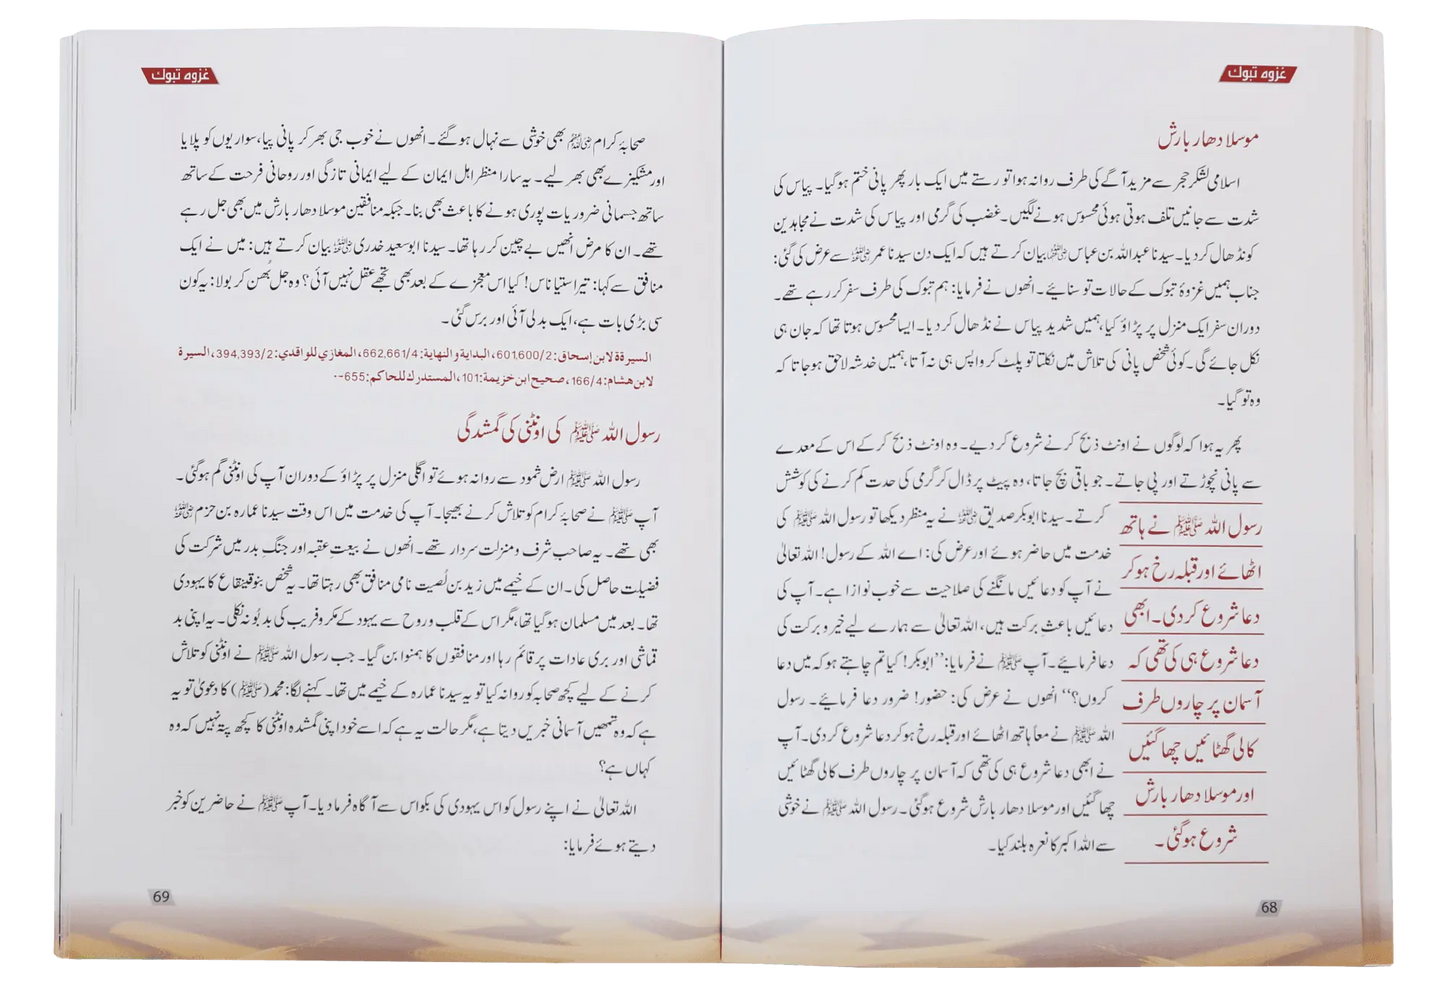 غزوہ تبوک
موسلا دھار بارش
اسلامی لشکر حجر سے مزید آگے کی طرف روانہ ہوا تو رستے میں ایک بار پھر پانی ختم ہوگیا۔ پیاس کی
شدت سے جانیں تلف ہوتی ہوئی محسوس ہونے لگیں۔ غضب کی گرمی اور پیاس کی شدت نے مجاہدین
کو نڈھال کر دیا۔ سیدنا عبداللہ بن عباس رضی اللہ عنہما بیان کرتے ہیں کہ ایک دن سیدنا عمر رضی اللہ عنہ سے عرض کی گئی:
جناب ہمیں غزوۂ تبوک کے حالات تو سنائیے۔ انھوں نے فرمایا: ہم تبوک کی طرف سفر کر رہے تھے۔
دوران سفر ایک منزل پر پڑاؤ کیا، ہمیں شدید پیاس نے نڈھال کر دیا۔ ایسا محسوس ہوتا تھا کہ جان ہی
نکل جائے گی۔ کوئی شخص پانی کی تلاش میں نکلتا تو پلٹ کر واپس ہی نہ آتا، ہمیں خدشہ لاحق ہو جاتا کہ
وہ تو گیا۔
پھر یہ ہوا کہ لوگوں نے اونٹ ذبح کرنے شروع کر دیے۔ وہ اونٹ ذبح کر کے اس کے معدے
سے پانی نچوڑتے اور پی جاتے۔ جو باقی بچ جاتا، وہ پیٹ پر ڈال کر گرمی کی حدت کم کرنے کی کوشش
کرتے۔ سیدنا ابوبکر صدیق رضی اللہ عنہ نے یہ منظر دیکھا تو رسول اللہ ﷺ کی
خدمت میں حاضر ہوئے اور عرض کی: اے اللہ کے رسول! اللہ تعالیٰ
نے آپ کو دعائیں مانگنے کی صلاحیت سے خوب نوازا ہے۔ آپ کی
دعائیں باعثِ برکت ہیں، اللہ تعالیٰ سے ہمارے لیے خیر و برکت کی
دعا فرمائیے۔ آپ ﷺ نے فرمایا: ’’ابوبکر! کیا تم چاہتے ہو کہ میں دعا
کروں؟‘‘ انھوں نے عرض کی: حضور! ضرور دعا فرمائیے۔ رسول
اللہ ﷺ نے معاً ہاتھ اٹھائے اور قبلہ رخ ہو کر دعا شروع کر دی۔ آپ
نے ابھی دعا شروع ہی کی تھی کہ آسمان پر چاروں طرف کالی گھٹائیں
چھا گئیں اور موسلا دھار بارش شروع ہوگئی۔ رسول اللہ ﷺ نے خوشی
سے اللہ اکبر کا نعرہ بلند کیا۔
رسول اللہ ﷺ نے ہاتھ
اٹھائے اور قبلہ رخ ہو کر
دعا شروع کر دی۔ ابھی
دعا شروع ہی کی تھی کہ
آسمان پر چاروں طرف
کالی گھٹائیں چھا گئیں
اور موسلا دھار بارش
شروع ہوگئی۔
68
غزوہ تبوک
صحابۂ کرام رضی اللہ عنہم بھی خوشی سے نہال ہو گئے۔ انھوں نے خوب جی بھر کر پانی پیا، سواریوں کو پلایا
اور مشکیزے بھی بھر لیے۔ یہ سارا منظر اہل ایمان کے لیے ایمانی تازگی اور روحانی فرحت کے ساتھ
ساتھ جسمانی ضروریات پوری ہونے کا باعث بھی بنا۔ جبکہ منافقین موسلا دھار بارش میں بھی جل رہے
تھے۔ ان کا مرض انھیں بے چین کر رہا تھا۔ سیدنا ابوسعید خدری رضی اللہ عنہ بیان کرتے ہیں: میں نے ایک
منافق سے کہا: تیرا ستیاناس! کیا اس معجزے کے بعد بھی تجھے عقل نہیں آئی؟ وہ جل بُھن کر بولا: یہ کون
سی بڑی بات ہے، ایک بدلی آئی اور برس گئی۔
السيرة لابن إسحاق: 601,600/2، البداية والنهاية: 662,661/4، المغازي للواقدي: 394,393/2، السيرة
لابن هشام: 166/4، صحيح ابن خزيمة: 101، المستدرك للحاكم: 655-٠
رسول اللہ ﷺ کی اونٹنی کی گمشدگی
رسول اللہ ﷺ ارض ثمود سے روانہ ہوئے تو اگلی منزل پر پڑاؤ کے دوران آپ کی اونٹنی گم ہوگئی۔
آپ ﷺ نے صحابۂ کرام کو تلاش کرنے بھیجا۔ آپ کی خدمت میں اس وقت سیدنا عمارہ بن حزم رضی اللہ عنہ
بھی تھے۔ یہ صاحب شرف و منزلت سردار تھے۔ انھوں نے بیعتِ عقبہ اور جنگِ بدر میں شرکت کی
فضیلت حاصل کی۔ ان کے خیمے میں زید بن لُصیت نامی منافق بھی رہتا تھا۔ یہ شخص بنوقینقاع کا یہودی
تھا۔ بعد میں مسلمان ہو گیا تھا، مگر اس کے قلب و روح سے یہود کے مکر و فریب کی بدبُو نہ نکلی۔ یہ اپنی بد
قماشی اور بری عادات پر قائم رہا اور منافقوں کا ہمنوا بن گیا۔ جب رسول اللہ ﷺ نے اونٹنی کو تلاش
کرنے کے لیے کچھ صحابہ کو روانہ کیا تو یہ سیدنا عمارہ کے خیمے میں تھا۔ کہنے لگا: محمد (ﷺ) کا دعویٰ تو یہ
ہے کہ وہ تمھیں آسمانی خبریں دیتا ہے، مگر حالت یہ ہے کہ اسے خود اپنی گمشدہ اونٹنی کا کچھ پتہ نہیں کہ وہ
کہاں ہے؟
اللہ تعالیٰ نے اپنے رسول کو اس یہودی کی بکواس سے آگاہ فرما دیا۔ آپ ﷺ نے حاضرین کو خبر
دیتے ہوئے فرمایا:
69